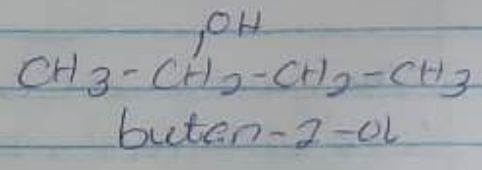 ,OH
CH3-CH2-CH2-CH3
butan-2-ol